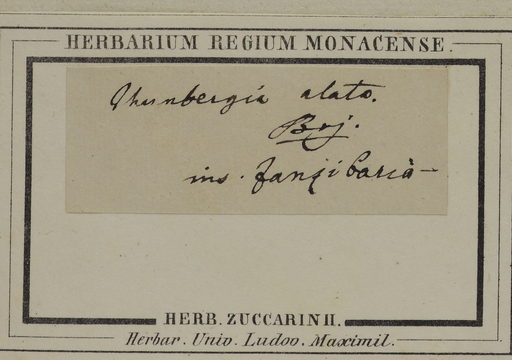 HERBARIUM REGIUM MONACENSE.
Thunbergia alata.
Boj.
ins. Zanzibaria
HERB. ZUCCARINII.
Herbar. Univ. Ludov. Maximil.